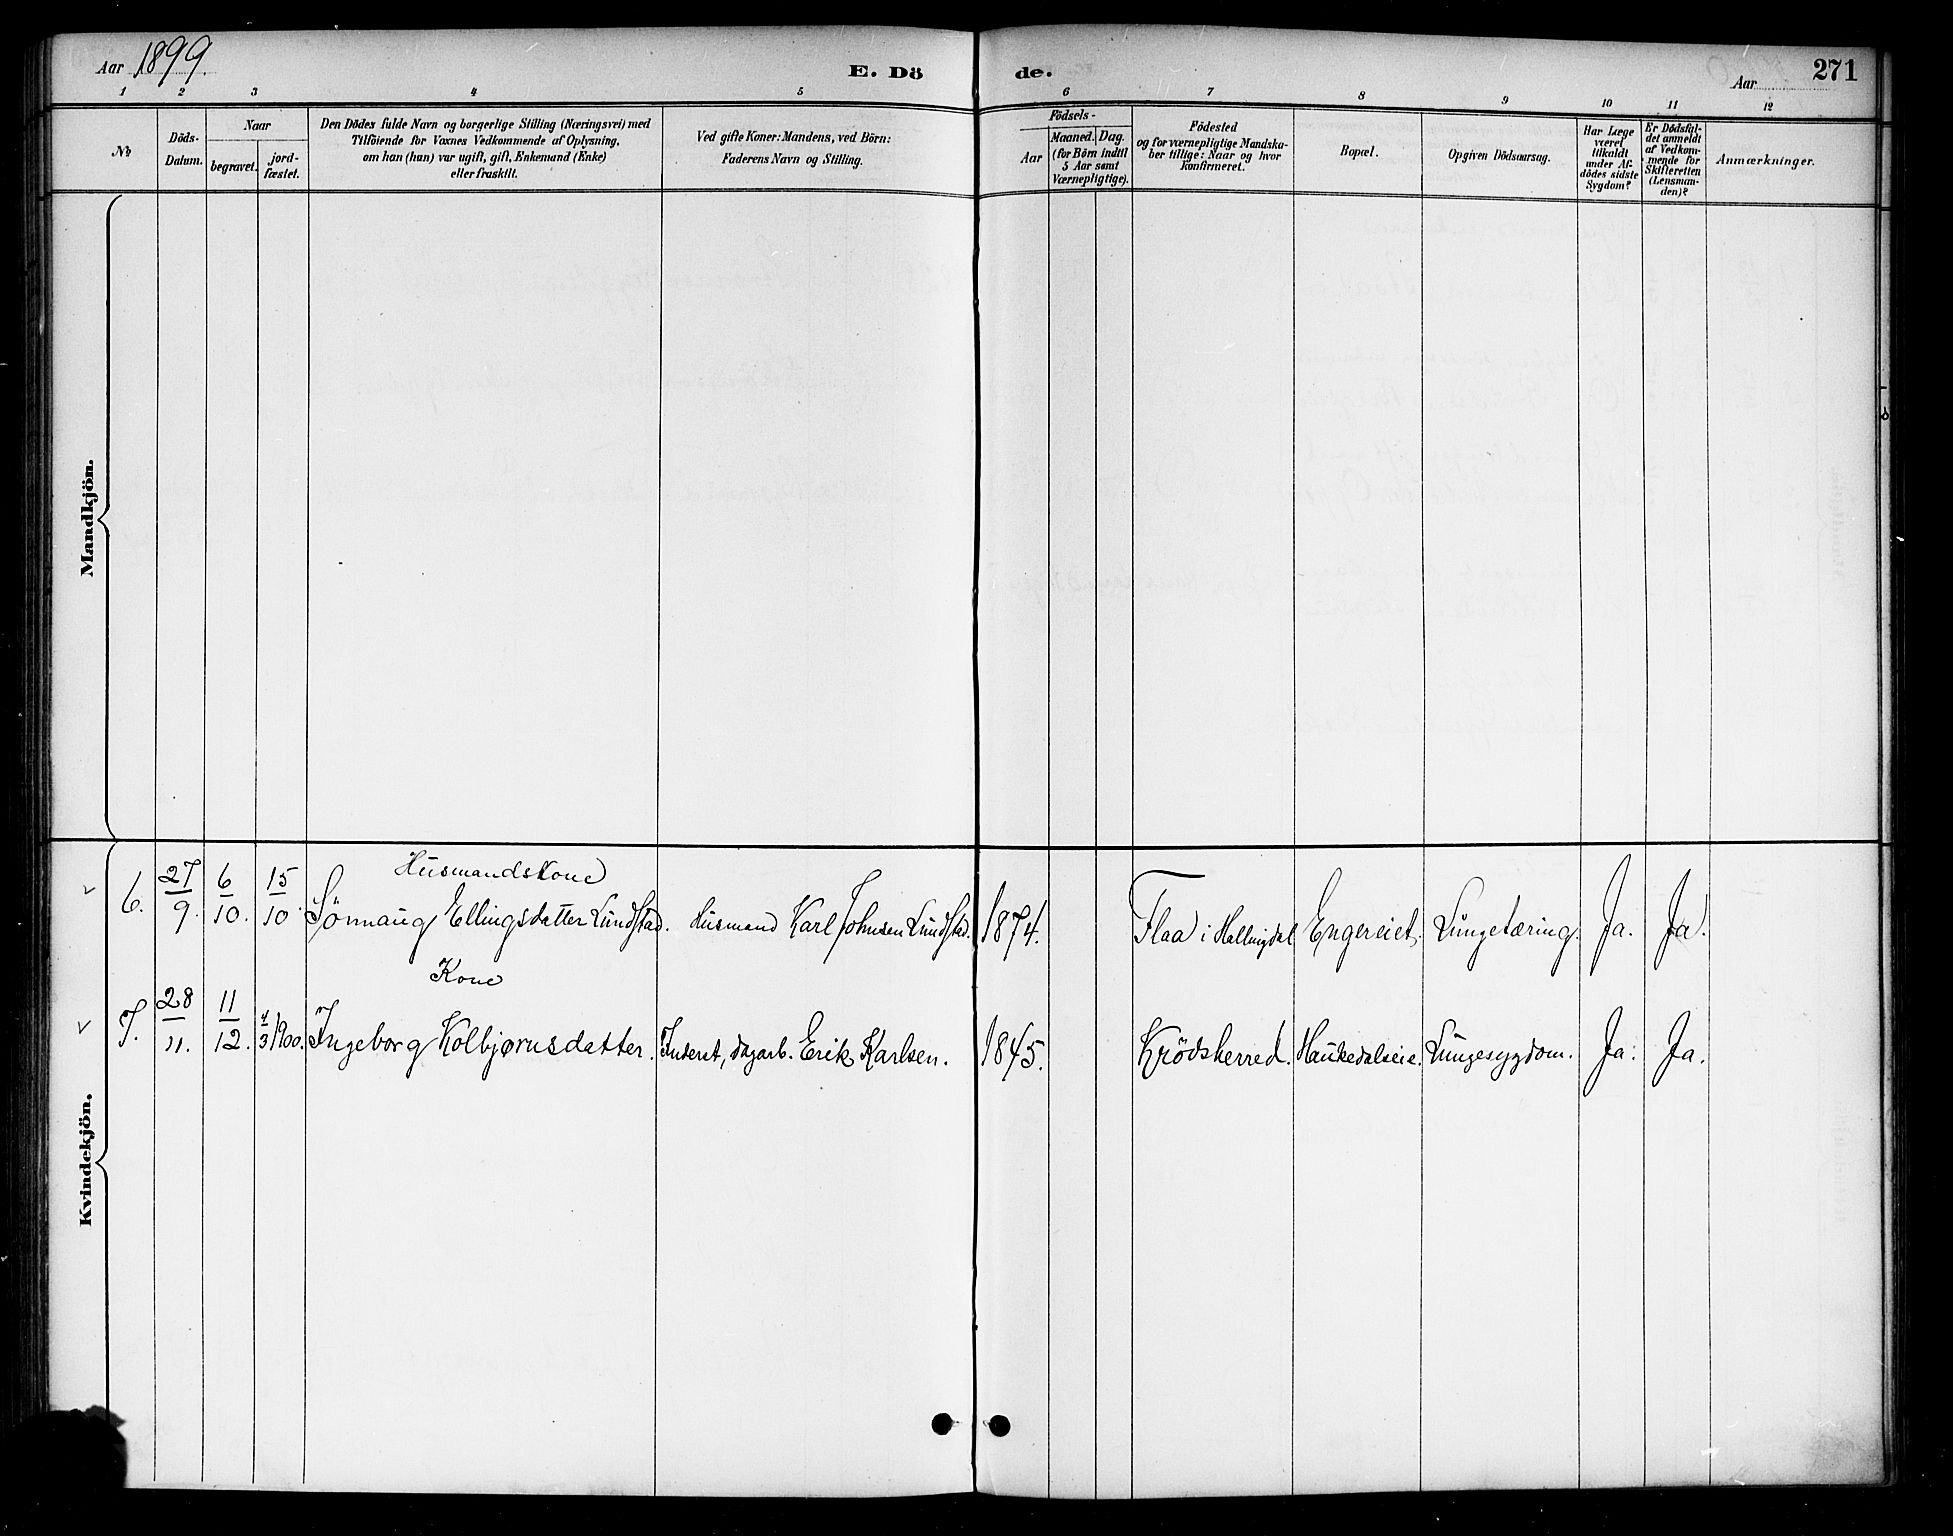 Aar 1899.
E. Dö
de.
Aar
271
1 2 3 4 5 6 7 8 9 10 11 12
No
Döds-
Datum.
Naar
begravet.
jord-
fæstet.
Den Dödes fulde Navn og borgerlige Stilling (Næringsvei) med
Tilföiende for Voxnes Vedkommende af Oplysning,
om han (hun) var ugift, gift, Enkemand (Enke)
eller fraskilt.
Ved gifte Koner: Mandens, ved Börn:
Faderens Navn og Stilling.
Födsels-
Aar
Maaned. Dag.
(for Börn indtil
5 Aar samt
Værnepligtige).
Födested
og for værnepligtige Mandska-
ber tillige: Naar og hvor
konfirmeret.
Bopæl.
Opgiven Dödsaarsag.
Har Læge
været
tilkaldt
under Af-
dödes sidste
Sygdom?
Er Dödsfal-
det anmeldt
af Vedkom-
mende for
Skifteretten
(Lensman-
den)?
Anmærkninger.
Mandkjön.
Kvindekjön.
Husmandskone
6. 27/9. 6/10. 15/10. Sönnaug Ellingsdatter Lundstad. Husmand Karl Johnsen Lundstad. 1874. Flaa i Hallingdal Engereiet. Lungetæring. Ja. Ja.
Kone
7. 28/11. 11/12. 4/3 1900. Ingeborg Kolbjørnsdatter. Inderst, dagarb. Erik Karlsen. 1845. Krödsherred. Haukedalseie. Lungesygdom. Ja. Ja.